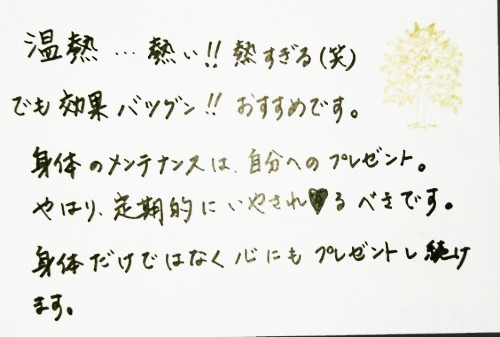 温熱…熱い!!熱すぎる(笑)
でも効果バツグン!!おすすめです。
身体のメンテナンスは、自分へのプレゼント。
やはり、定期的にいやされ♥るべきです。
身体だけではなく心にもプレゼントし続け
ます。